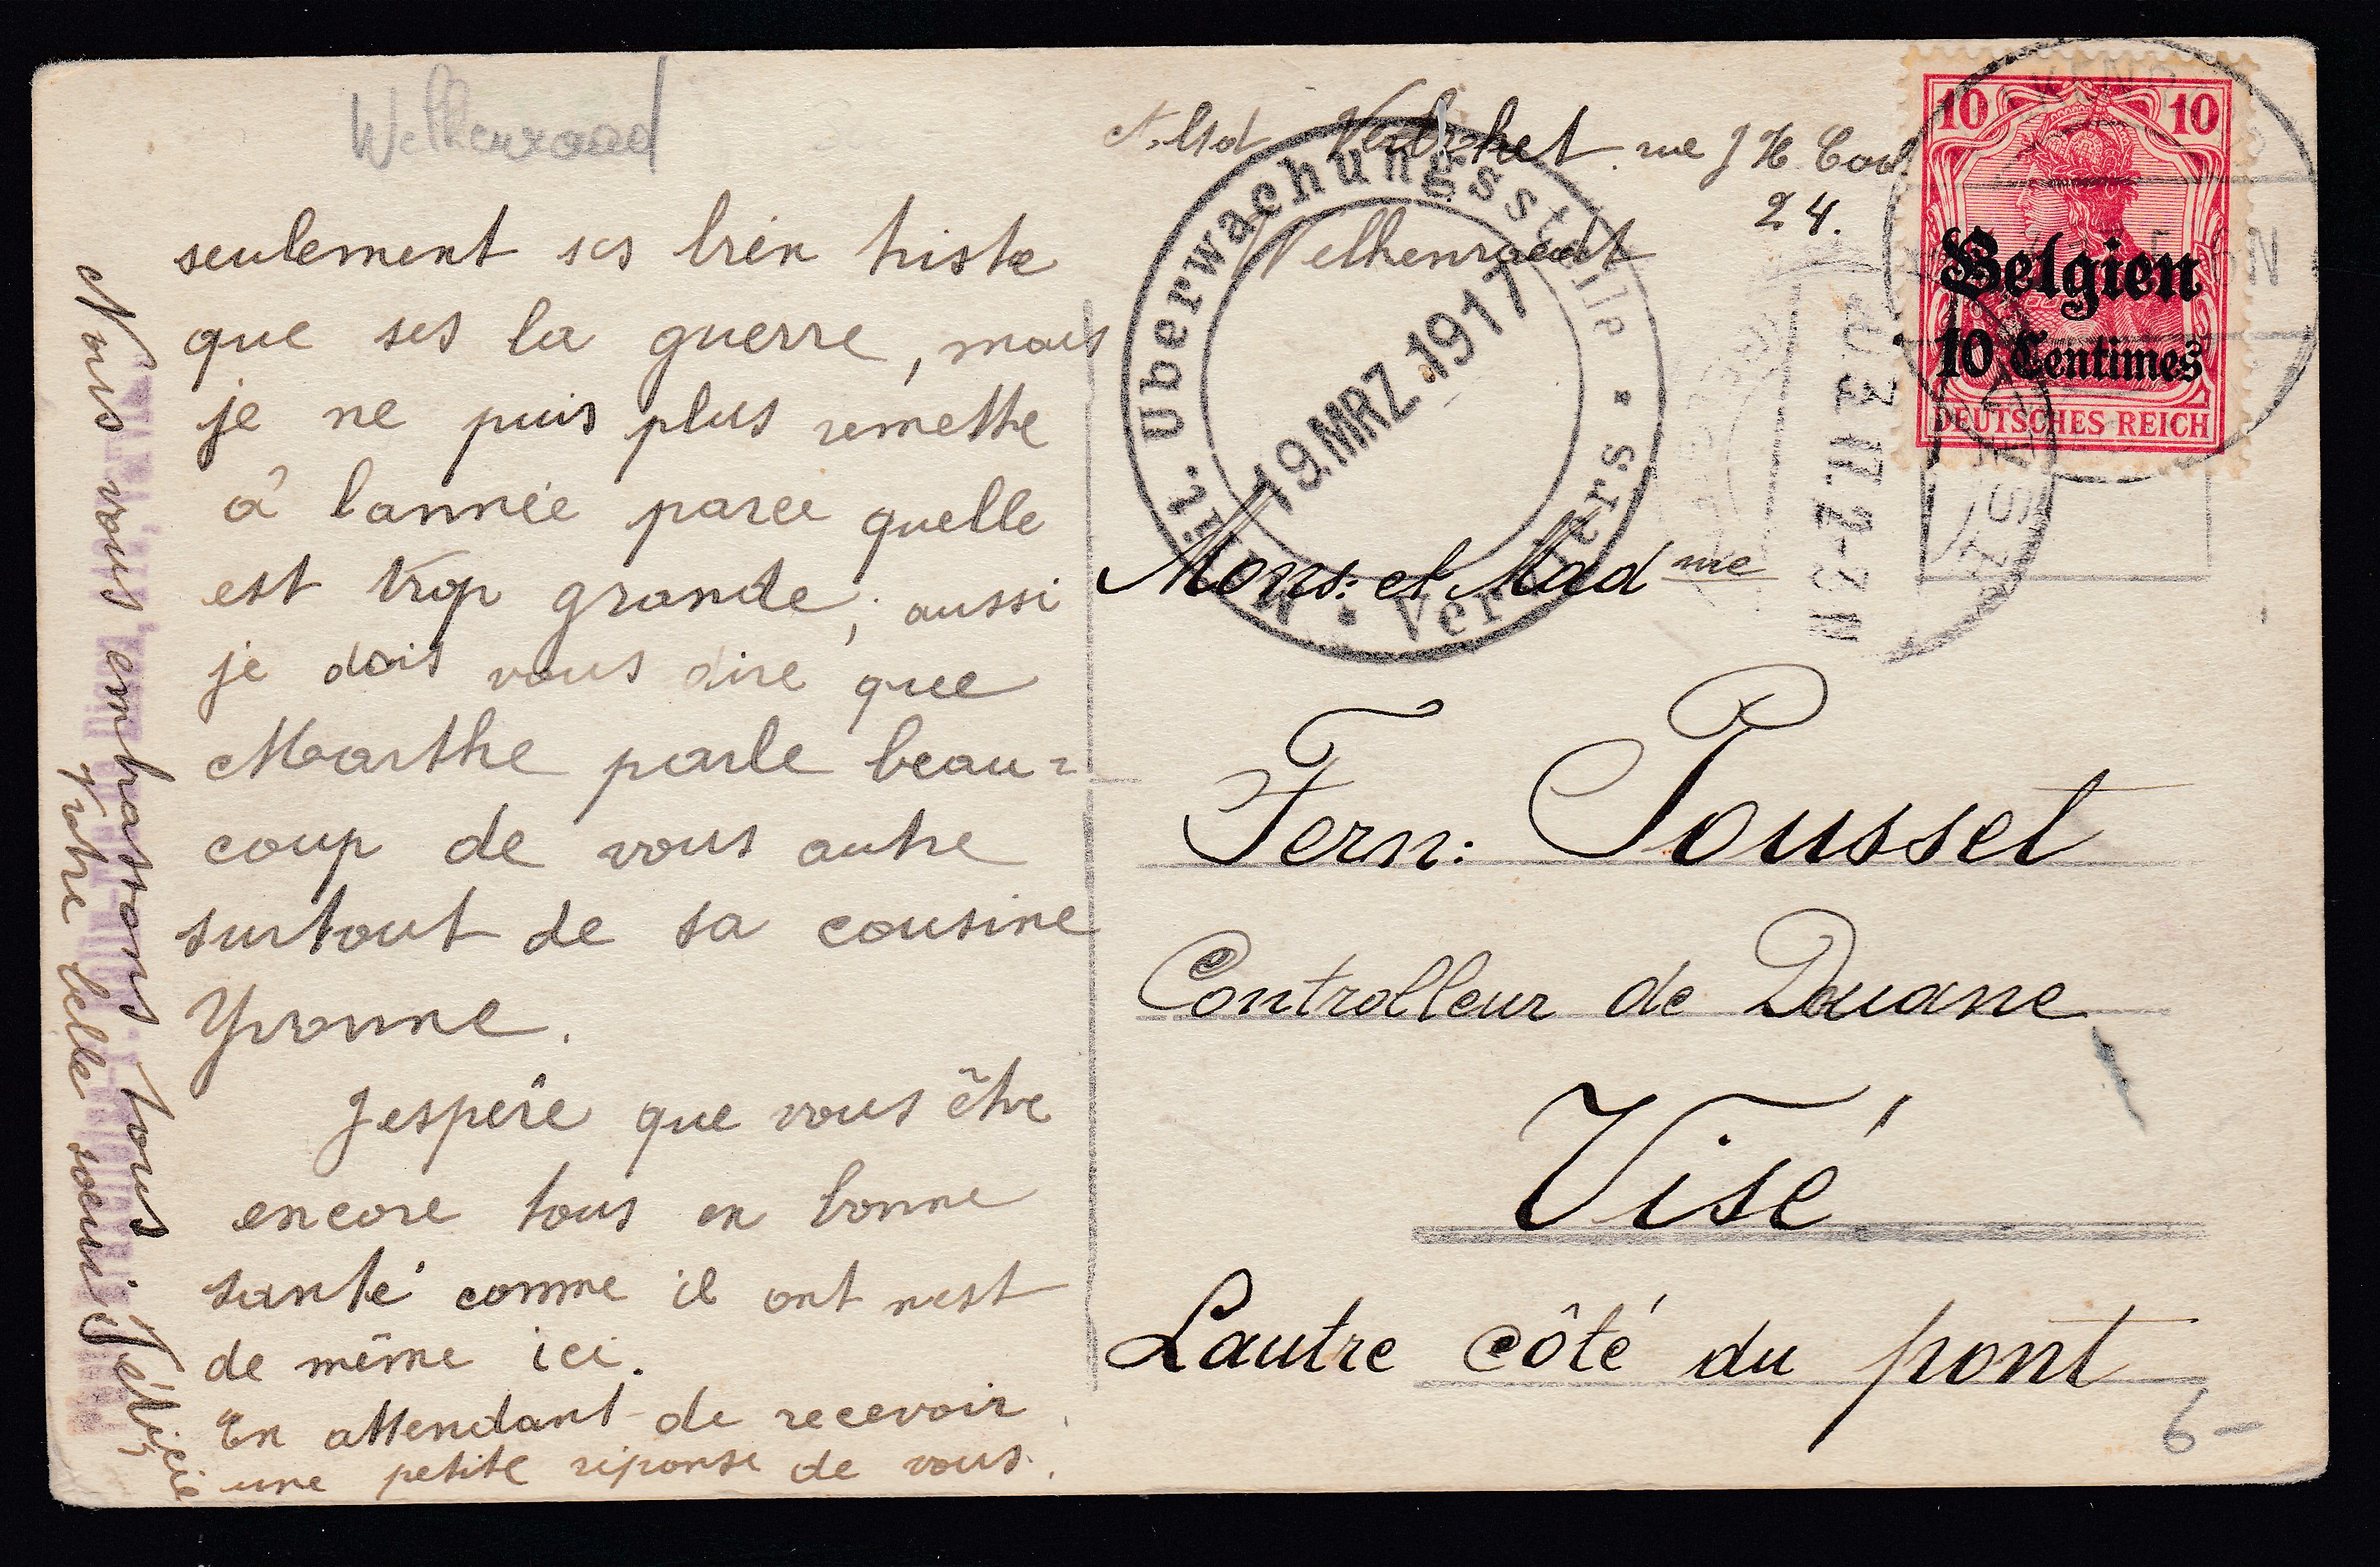 Welkenraad
seulement ses bien triste
que ses la guerre, mais
je ne puis plus remettre
à lannée parce quelle
est trop grande, aussi
je dois vous dire que
Marthe parle beau-
coup de vous autre
surtout de sa cousine
Yvonne.
Jespère que vous être
encore tous en bonne
santé comme il ont nest
de même ici.
En attendant de recevoir
une petite réponse de vous.
Nous vous embrassons tous
Votre belle soeur
rue J H
24.
Welkenraedt
Mil. Überwachungsstelle
Verviers
19.MRZ.1917
10 10
Belgien
10 Centimes
DEUTSCHES REICH
Mons: et Madme
Fern: Pousset
Controlleur de Douane
Visé
Lautre côté du pont
6-